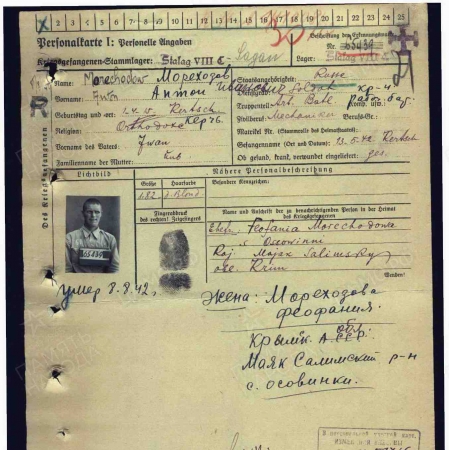 1 2 3 4 5 6 7 8 9 10 11 12 13 14 15 16 17 18 19 20 21 22 23 24 25
Personalkarte I: Personelle Angaben
Kriegsgefangenen-Stammlager: Stalag VIII C- Sagan
Beschriftung der Erkennungsmarke
Nr. 65484
Lager: Stalag VIII C
Des Kriegsgefangenen
Name: Morechodow Мореходов
Vorname: Антон
Geburtstag und -ort: Kertsch Керчь
Religion: Orthodox
Vorname des Vaters: Iwan
Familienname der Mutter:
Staatsangehörigkeit: Russe
Dienstgrad: Soldat кр-ц
Truppenteil: Art. Batl.
Zivilberuf: Mechaniker
Matrikel Nr. (Stammrolle des Heimatstaates):
Gefangennahme (Ort und Datum): 13.5.42 Kertsch
Ob gesund, krank, verwundet eingeliefert: ges.
Lichtbild
Nähere Personalbeschreibung
Größe Haarfarbe Besondere Kennzeichen:
1.82 d. Blond
Fingerabdruck
des rechten! Zeigefingers
Name und Anschrift der zu benachrichtigenden Person in der Heimat
des Kriegsgefangenen
Feofania Morechodowa
s Ossowinni
Raj. Majak Salimsky
Krim
Wenden!
65484
умер 8.8.42.
Жена: Мореходова
Феофания.
Крымск. обл.
А ССР.
Маяк Салимский р-н
с. Осовинки.